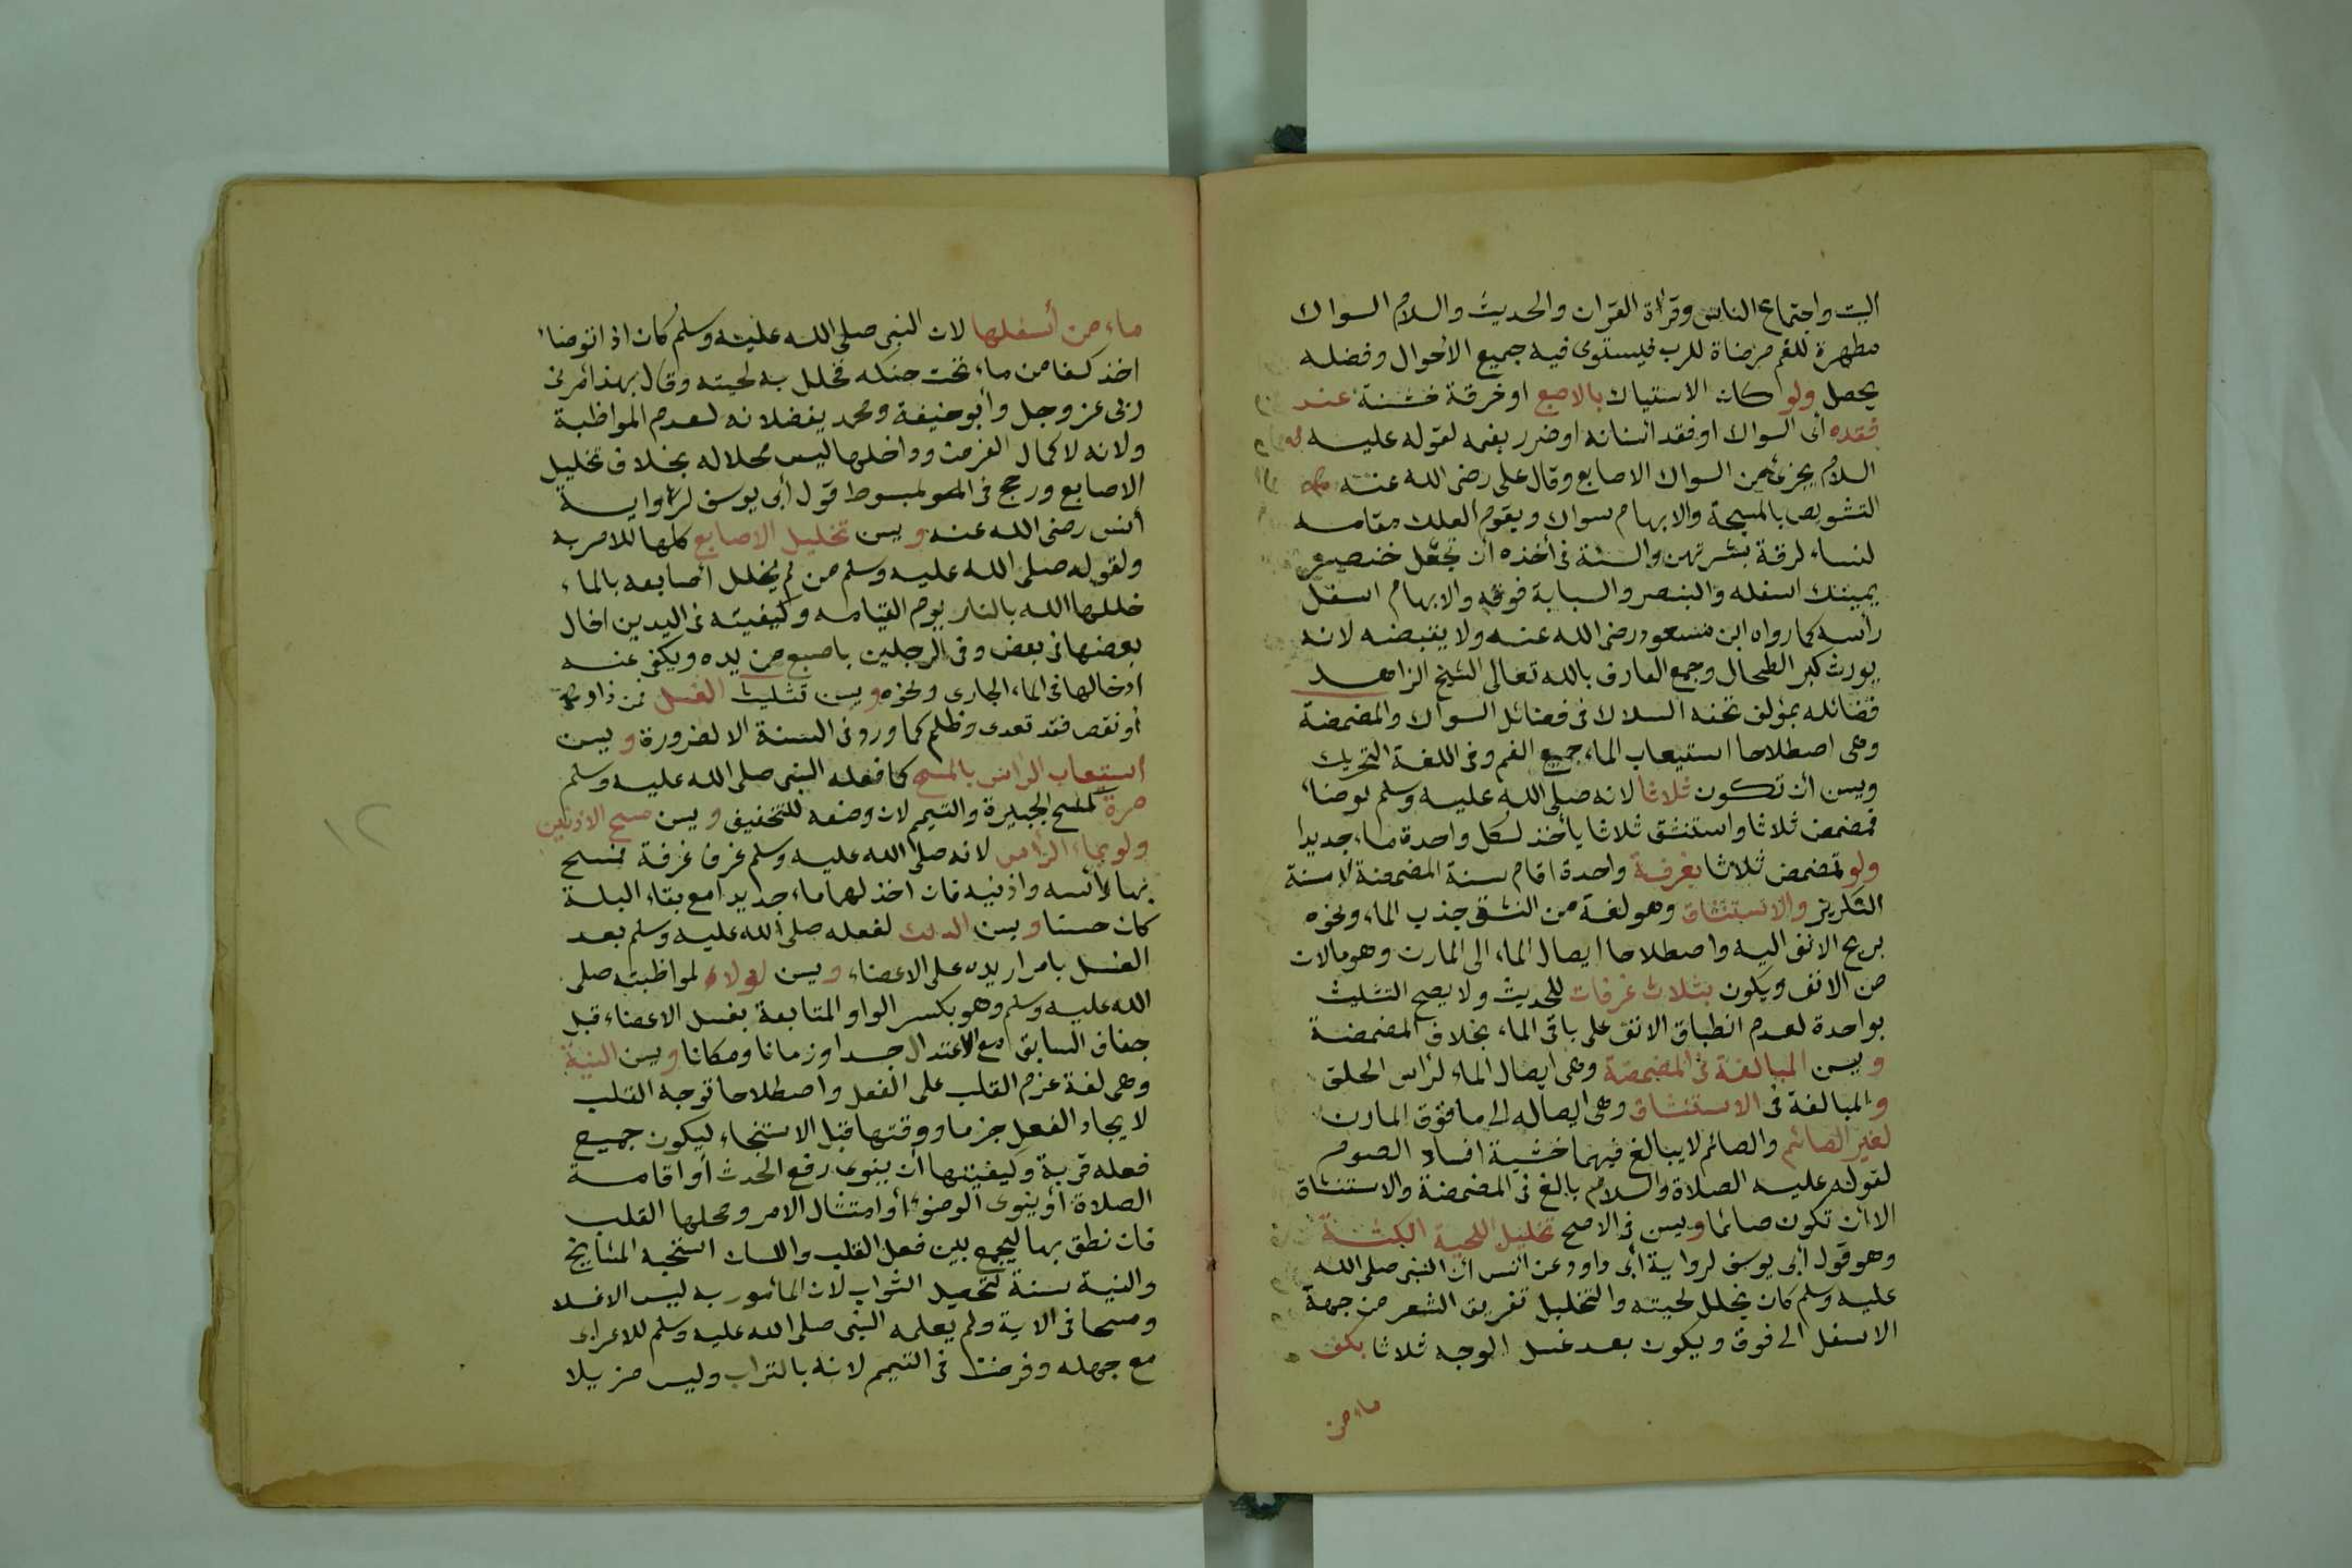 البيت واجتماع الناس وقرأة القرآن والحديث والسلام السواك
مطهرة للفم مرضاة للرب فيستوى فيه جميع الاحوال وفضله
يحصل ولو كان الاستياك بالاصبع او خرقة خشنة عند
فقده أى السواك او فقد اسنانه او ضرر بفمه لقوله عليه
السلام يجزئ من السواك الاصابع وقال على رضى الله عنه
التشويص بالمسبحة والابهام سواك ويقوم العلك مقامه
لنساء لرقة بشرتهن والسنة فى أخذه أن تجعل خنصر
يمينك اسفله والبنصر والسبابة فوقه والابهام اسفل
رأسه كما رواه ابن مسعود رضى الله عنه ولا يقبضه لانه
يورث كبر الطحال وجمع العارف بالله تعالى الشيخ الزاهد
فضائله بمؤلف تحفه السلاك فى فضائل السواك والمضمضة
وهى اصطلاحا استيعاب الماء جميع الفم وفى اللغة التحريك
ويسن أن تكون ثلاثا لانه صلى الله عليه وسلم توضاء
فمضمض ثلاثا واستنشق ثلاثا يأخذ لكل واحدة ماء جديدا
ولو تمضمض ثلاثا بغرفة واحدة اقام سنة المضمضة لا سنة
التكرير والاستنشاق وهو لغة من النشق جذب الماء ونحوه
بريح الانف اليه واصطلاحا ايصال الماء الى المارن وهو مالان
من الانف ويكون بثلاث غرفات للحديث ولا يصح التثليث
بواحدة لعدم انطباق الانف على باقى الماء بخلاف المضمضة
ويسن المبالغة فى المضمضة وهى ايصال الماء لراس الحلق
والمبالغة فى الاستنشاق وهى ايصاله الى ما فوق المارن
لغير الصائم والصائم لا يبالغ فيهما خشية افساد الصوم
لقوله عليه الصلاة والسلام بالغ فى المضمضة والاستنشاق
الا أن تكون صائما ويسن فى الاصح تخليل اللحية الكثة
وهو قول أبى يوسف لرواية أبى داود عن انس ان النبى صلى الله
عليه وسلم كان يخلل لحيته والتخليل تفريق الشعر من جهة
الاسفل الى فوق ويكون بعد غسل الوجه ثلاثا بكف
ماء من
ماء من أسفلها لان النبى صلى الله عليه وسلم كان اذا توضاء
اخذ كفا من ماء تحت حنكه فخلل به لحيته وقال بهذا أمرنى
ربى عز وجل وأبو حنيفة ومحمد يفضلانه لعدم المواظبة
ولانه لاكمال الفرض وداخلها ليس محلا له بخلاف تخليل
الاصابع ورجح فى المبسوط قول أبى يوسف لرواية
أنس رضى الله عنه ويسن تخليل الاصابع كلها للامر به
ولقوله صلى الله عليه وسلم من لم يخلل أصابعه بالماء
خللها الله بالنار يوم القيامه وكيفيته فى اليدين ادخال
بعضها فى بعض وفى الرجلين باصبع من يده ويكفى عنه
ادخالها فى الماء الجارى ونحوه ويسن تثليث الغسل فمن زاد
أو نقص فقد تعدى وظلم كما ورد فى السنة الا لضرورة ويسن
استيعاب الراس بالمسح كما فعله النبى صلى الله عليه وسلم
مرة كمسح الجبيرة والتيمم لان وضعه للتخفيف ويسن مسح الاذنين
ولو بماء الرأس لانه صلى الله عليه وسلم غرف غرفة فمسح
بها رأسه واذنيه فان اخذ لهما ماء جديدا مع بقاء البلة
كان حسنا ويسن الدلك لفعله صلى الله عليه وسلم بعد
الغسل بامرار يده على الاعضاء ويسن لولاء لمواظبته صلى
الله عليه وسلم وهو بكسر الواو المتابعة بغسل الاعضاء قبل
جفاف السابق مع الاعتدال جسدا وزمانا ومكانا ويسن النية
وهى لغة عزم القلب على الفعل واصطلاحا توجه القلب
لايجاد الفعل جزما ووقتها قبل الاستنجاء ليكون جميع
فعله قربة وكيفيتها أن ينوى رفع الحدث أو اقامة
الصلاة أو ينوى الوضوء أو امتثال الامر ومحلها القلب
فان نطق بها ليجمع بين فعل القلب واللسان استحبه المشايخ
والنية سنة لتحصيل الثواب لان المأمور به ليس الا غسلا
ومسحا فى الاية ولم يعلمه النبى صلى الله عليه وسلم للاعرابى
مع جهله وفرضت فى التيمم لانه بالتراب وليس مزيلا
١٢